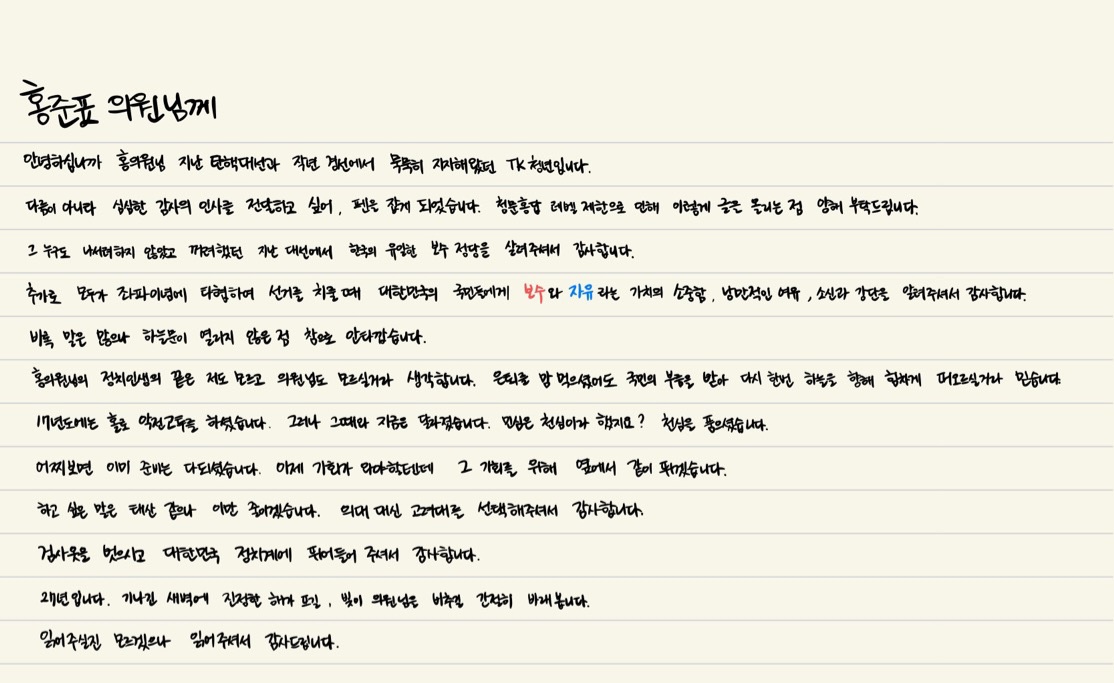 홍준표 의원님께
안녕하십니까 홍의원님 지난 탄핵대선과 작년 경선에서 묵묵히 지지해왔던 TK 청년입니다.
다름이 아니라 심심한 감사의 인사를 전달하고 싶어, 펜을 잡게 되었습니다. 청문홍답 레벨 제한으로 인해 이렇게 글을 올리는 점 양해 부탁드립니다.
그 누구도 나서려하지 않았고 꺼려했던 지난 대선에서 한국의 유일한 보수 정당을 살려주셔서 감사합니다.
추가로 모두가 좌파이념에 타협하며 선거를 치룰 때 대한민국의 국민들에게 보수와 자유라는 가치의 소중함, 낭만적인 여유, 소신과 강단을 알려주셔서 감사합니다.
비록 말은 많으나 하늘문이 열리지 않은 점 참으로 안타깝습니다.
홍의원님의 정치인생의 끝은 저도 모르고 의원님도 모르실거라 생각합니다. 은퇴를 맘 먹으셨어도 국민의 부름을 받아 다시 한번 하늘을 향해 힘차게 떠오르실거라 믿습니다.
17년도에는 홀로 악전고투를 하셨습니다. 그러나 그때와 지금은 달라졌습니다. 민심은 천심이라 했지요? 천심을 품으셨습니다.
어찌보면 이미 준비는 다되셨습니다. 이제 기회가 와야할텐데 그 기회를 위해 옆에서 같이 뛰겠습니다.
하고 싶은 말은 태산 같으나 이만 줄이겠습니다. 의대 대신 고려대를 선택해주셔서 감사합니다.
검사옷을 벗으시고 대한민국 정치계에 뛰어들어 주셔서 감사합니다.
27년입니다. 기나긴 새벽에 진정한 해가 뜨길, 빛이 의원님을 비추길 간절히 바래봅니다.
읽어주실진 모르겠으나 읽어주셔서 감사드립니다.